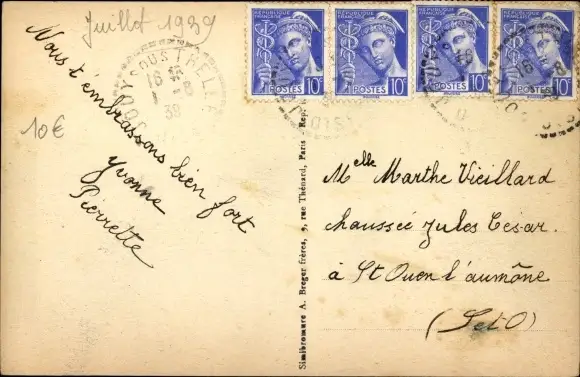 Juillot 1939
Nous t'embrassons bien fort
Yvonne
Pierrette
10€
16 8
38
RÉPUBLIQUE FRANÇAISE
POSTES 10c
RÉPUBLIQUE FRANÇAISE
POSTES 10c
RÉPUBLIQUE FRANÇAISE
POSTES 10c
RÉPUBLIQUE FRANÇAISE
POSTES 10c
Simibromure A. Breger frères, 9, rue Thénard, Paris
Melle Marthe Vieillard
chaussée Jules César.
à St Ouen l'aumône
(Set-O)